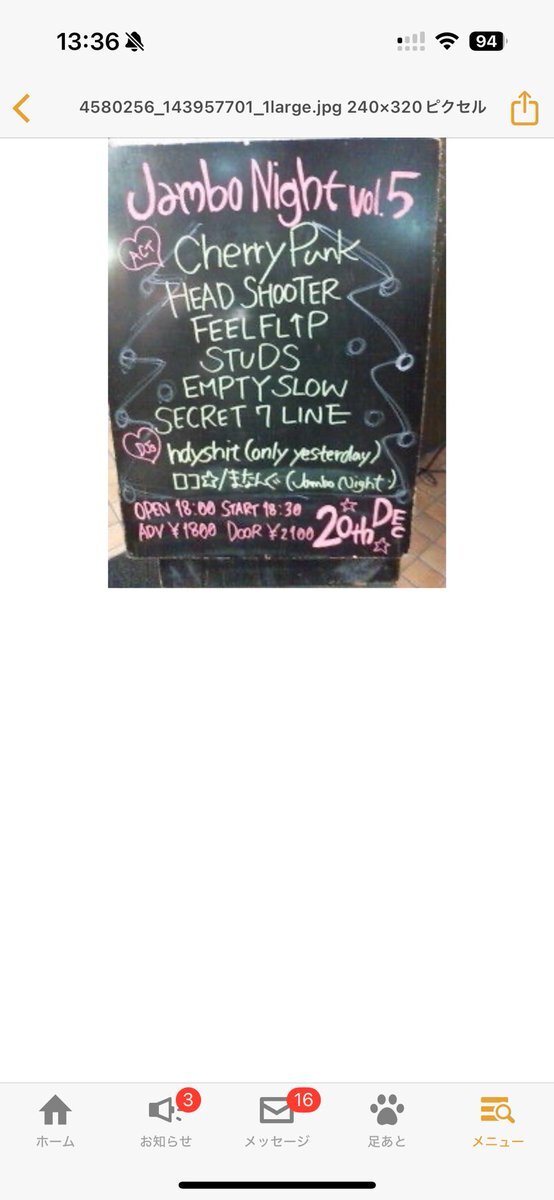 13:36
94
4580256_143957701_1large.jpg 240×320ピクセル
Jambo Night vol.5
ACT
Cherry Punk
HEAD SHOOTER
FEELFL↑P
STUDS
EMPTY SLOW
SECRET 7 LINE
DJs
hdyshit (only yesterday)
ロコ☆/まなんぐ (Jambo Night)
OPEN 18:00 START 18:30
ADV ¥1800 DOOR ¥2100
20th DEC
3
16
ホーム
お知らせ
メッセージ
足あと
メニュー